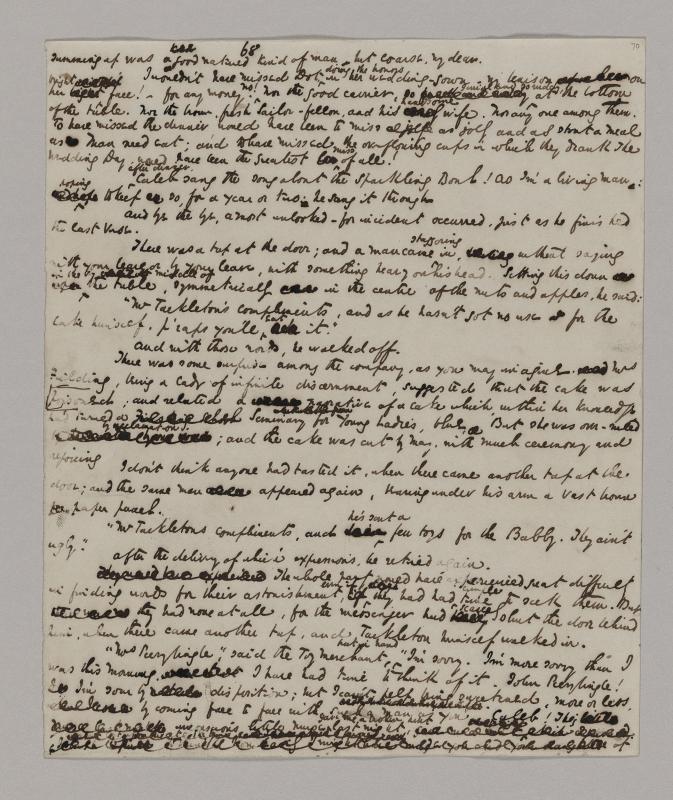 68
70
summing up was a good natured kind of man, but coarse, my dear.
I wouldn't have missed Dot, doing the honors in her wedding-gown, my benison on
her bright face! - for any money. no! nor the good carrier, so jovial and so ruddy, at the bottom
of the table. Nor the brown, fresh sailor-fellow, and his handsome wife. Nor any one among them.
To have missed the dinner would have been to miss as jolly and as stout a meal
as man need eat; and to have missed the overflowing cups in which they drank The
Wedding Day, would have been the greatest miss of all.
after dinner, Caleb sang the song about the Sparkling Bowl! As I'm a living man:
hoping to keep so, for a year or two: he sang it through.
and by the by, a most unlooked-for incident occurred, just as he finished
the last verse.
There was a tap at the door; and a man came staggering in, without saying
with your leave or by your leave, with something heavy on his head. Setting this down
in the middle of the table, symmetrically in the centre of the nuts and apples, he said:
"Mr Tackleton's compliments, and as he hasn't got no use for the
cake himself, p'raps you'll eat it."
and with those words, he walked off.
There was some surprise among the company, as you may imagine. Mrs
Fielding, being a lady of infinite discernment, suggested that the cake was
poisoned; and related a narrative of a cake which within her knowledge
had turned a Seminary for Young Ladies, blue. But she was over-ruled
by acclamation; and the cake was cut by May, with much ceremony and
rejoicing
I don't think anyone had tasted it, when there came another tap at the
door; and the same man appeared again, having under his arm a vast brown
paper parcel.
"Mr Tackleton's compliments, and he's sent a few toys for the Babby. They ain't
ugly."
after the delivery of which expressions, he retired again.
The whole party would have experienced great difficulty
in finding words for their astonishment, even if they had had ample time to seek them. But
they had none at all, for the messenger had scarcely shut the door behind
him, when there came another tap, and Tackleton himself walked in.
"Mrs Peerybingle" said the Toy merchant, hat in hand, "I'm sorry. I'm more sorry than I
was this morning. I have had time to think of it. John Peerybingle!
I'm sour by disposition; but I can't help being sweetened, more or less,
by coming face to face with such a man as you. Caleb! This
unconscious little nurse gave me a broken hint last night,